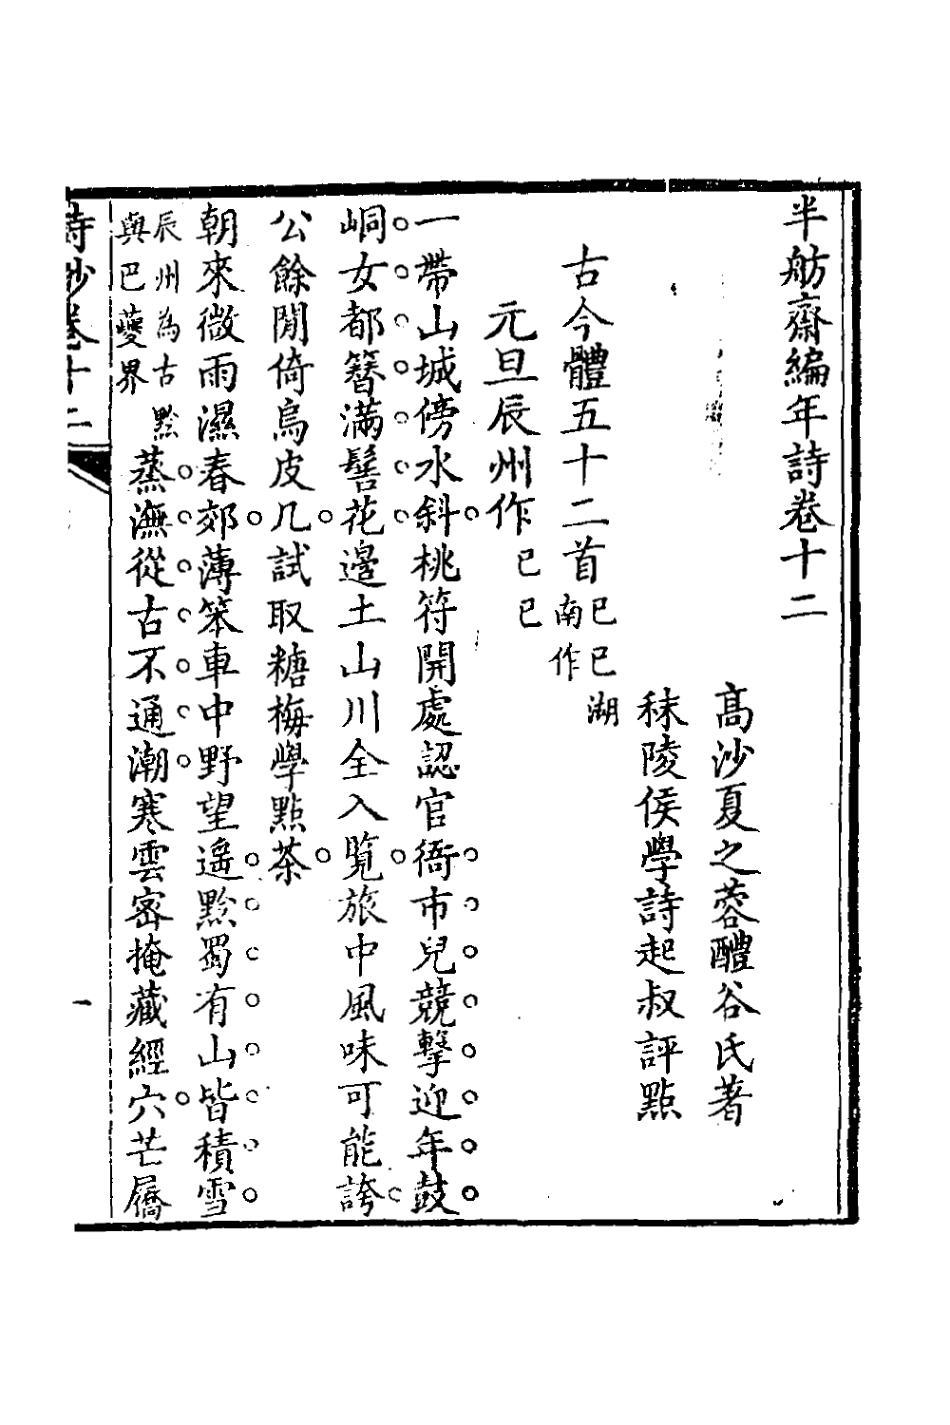 半舫齋編年詩卷十二
高沙夏之蓉醴谷氏著
秣陵侯學詩起叔評點
古今體五十二首己巳湖南作
元旦辰州作己巳
一帶山城傍水斜桃符開處認官衙市兒競擊迎年鼓
峒女都簪滿髻花邊土山川全入覧旅中風味可能誇
公餘閒倚烏皮几試取糖梅學點茶
朝來微雨濕春郊薄笨車中野望遙黔蜀有山皆積雪
辰州為古黔
與巴夔界
蒸潕從古不通潮寒雲密掩藏經穴芒屩
詩鈔卷十二
一